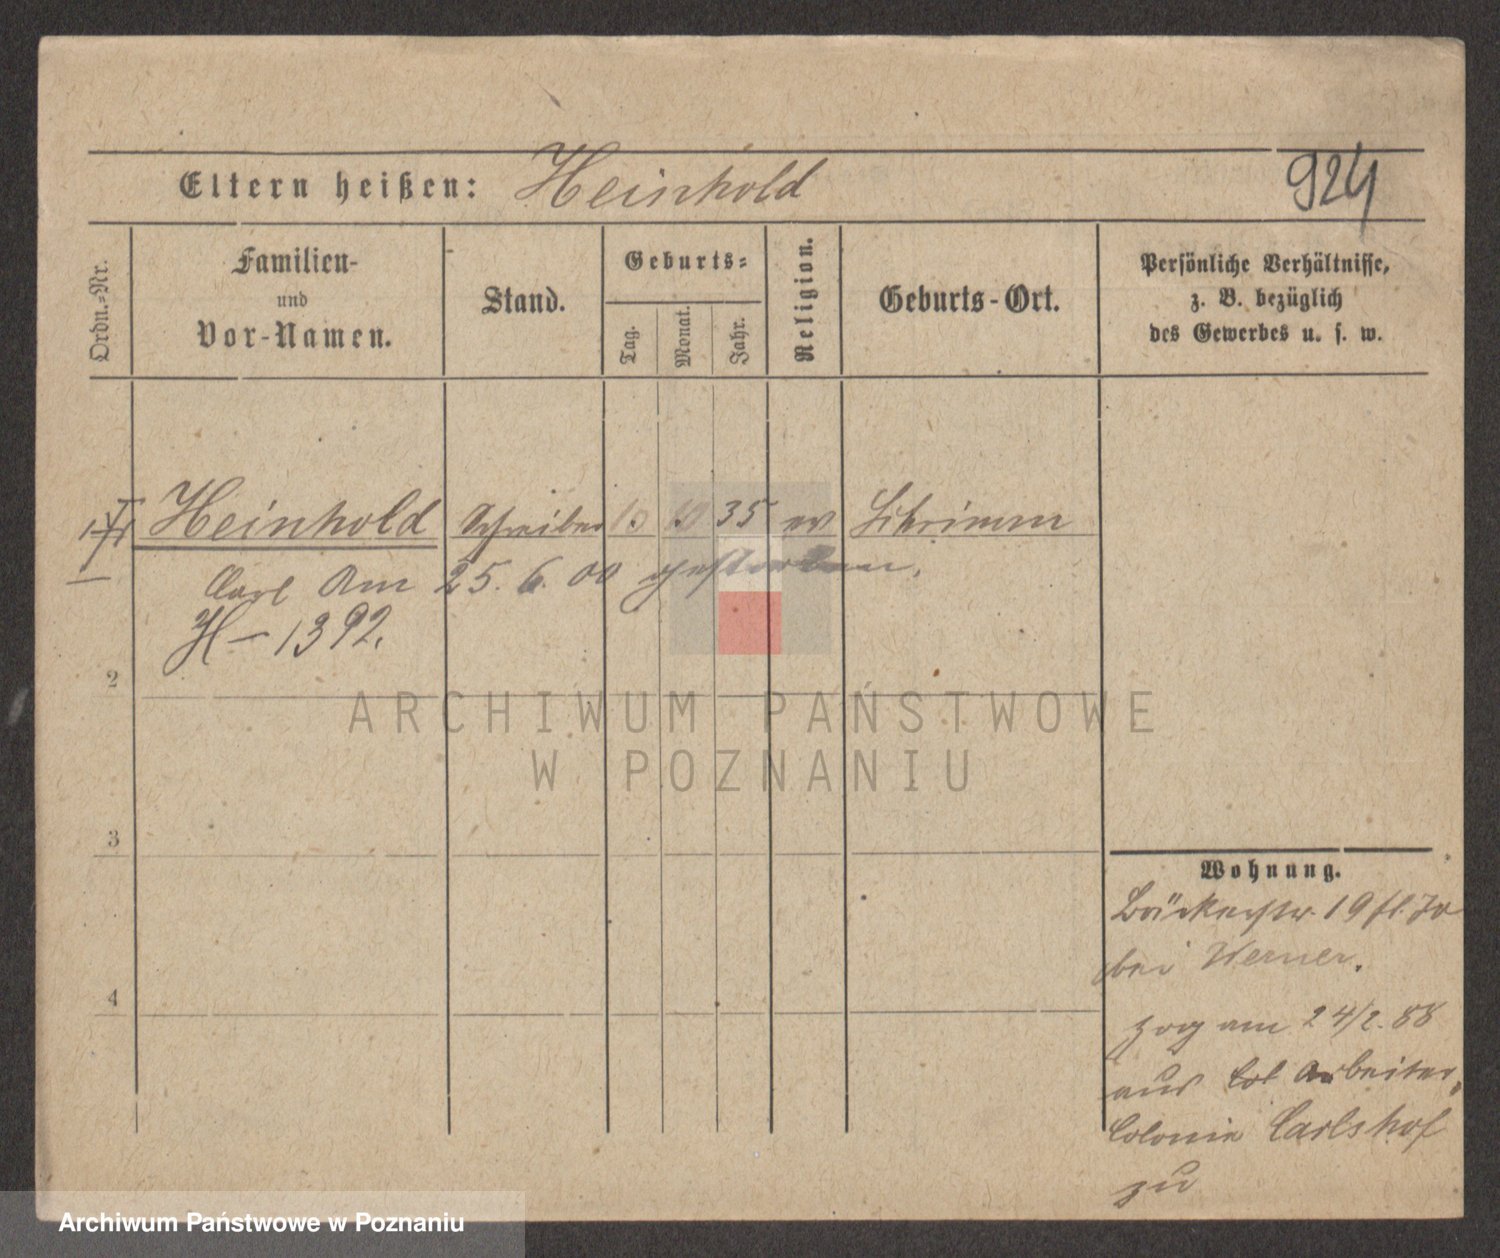 Eltern heißen: Heinhold 924
Ordn.-Nr.
Familien-
und
Vor-Namen.
Stand.
Geburts-
Tag.
Monat.
Jahr.
Religion.
Geburts-Ort.
Persönliche Verhältnisse,
z. B. bezüglich
des Gewerbes u. s. w.
Heinhold Schreiber 10 10 35 ev Schrimm
Carl Am 25. 6. 00 gestorben.
H – 1392.
2
3
4
ARCHIWUM PAŃSTWOWE
W POZNANIU
Wohnung.
19
bei Werner.
zog am 24/2. 88
aus Arbeiter
Colonie Carlshof
zu
Archiwum Państwowe w Poznaniu